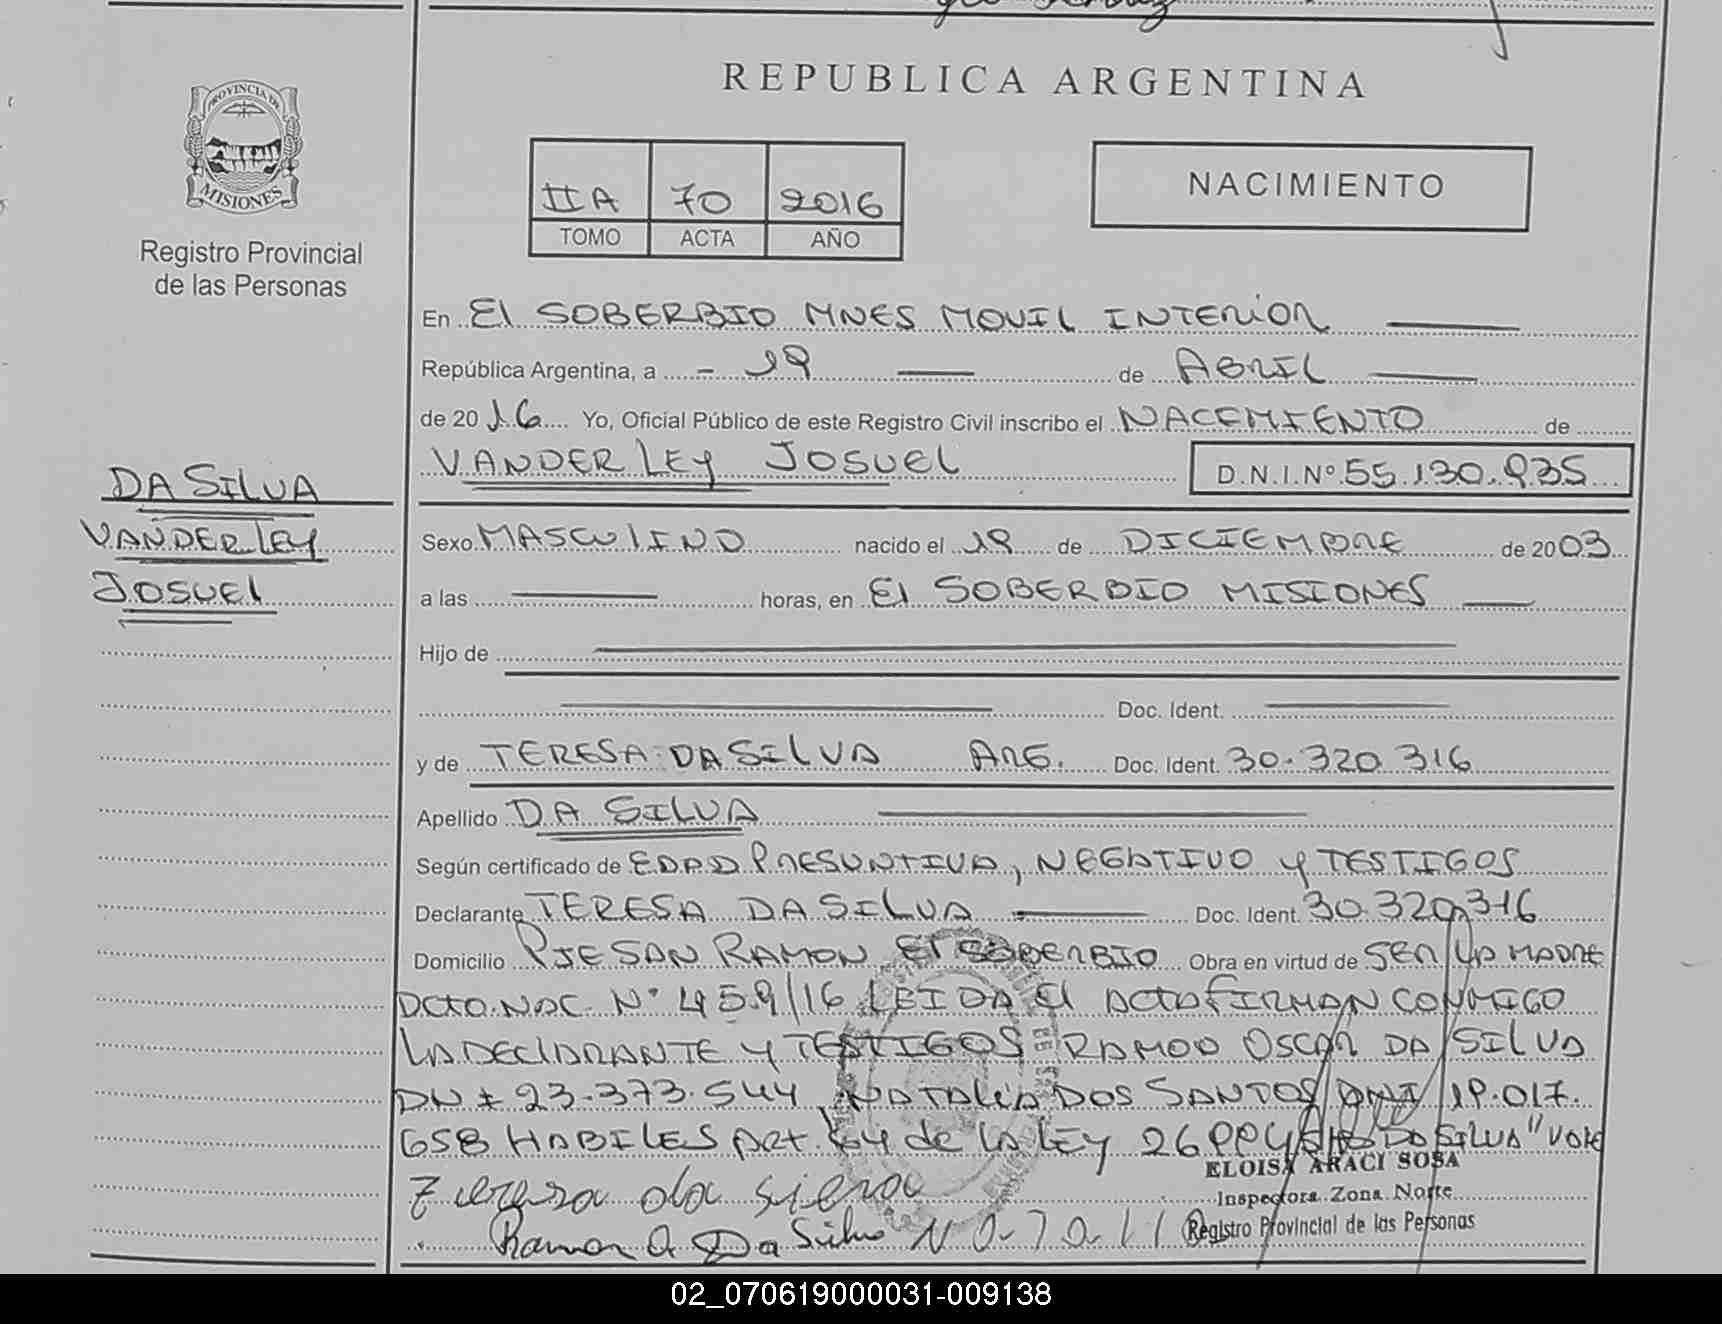 REPUBLICA ARGENTINA
PROVINCIA DE
MISIONES
Registro Provincial
de las Personas
IIA 70 2016
TOMO ACTA AÑO
NACIMIENTO
En El SOBERBIO MNES MOVIL INTERIOR
República Argentina, a 19 de ABRIL
de 2016 Yo, Oficial Público de este Registro Civil inscribo el NACIMIENTO de
VANDERLEY JOSUEL D.N.I.Nº 55.130.935
DA SILVA
VANDERLEY
JOSUEL
Sexo MASCULINO nacido el 19 de DICIEMBRE de 2003
a las horas, en El SOBERBIO MISIONES
Hijo de
Doc. Ident.
y de TERESA DA SILVA ARG. Doc. Ident. 30.320.316
Apellido DA SILVA
Según certificado de EDAD PRESUNTIVA, NEGATIVO y TESTIGOS
Declarante TERESA DA SILVA Doc. Ident. 30.320.316
Domicilio PJE SAN RAMON El SOBERBIO Obra en virtud de SER LA MADRE
DCTO. NAC. Nº 459/16 LEIDA El ACTA FIRMAN CONMIGO
LA DECLARANTE y TESTIGOS RAMOO OSCAR DA SILVA
DNI 23.373.544 NATALIA DOS SANTOS DNI 19.017.
658 HABILES ART. 64 de LA LEY 26994 DA SILVA "VALE
ELOISA ARACI SOSA
Inspectora Zona Norte
Registro Provincial de las Personas
Ramon O. Da Silva
02_070619000031-009138